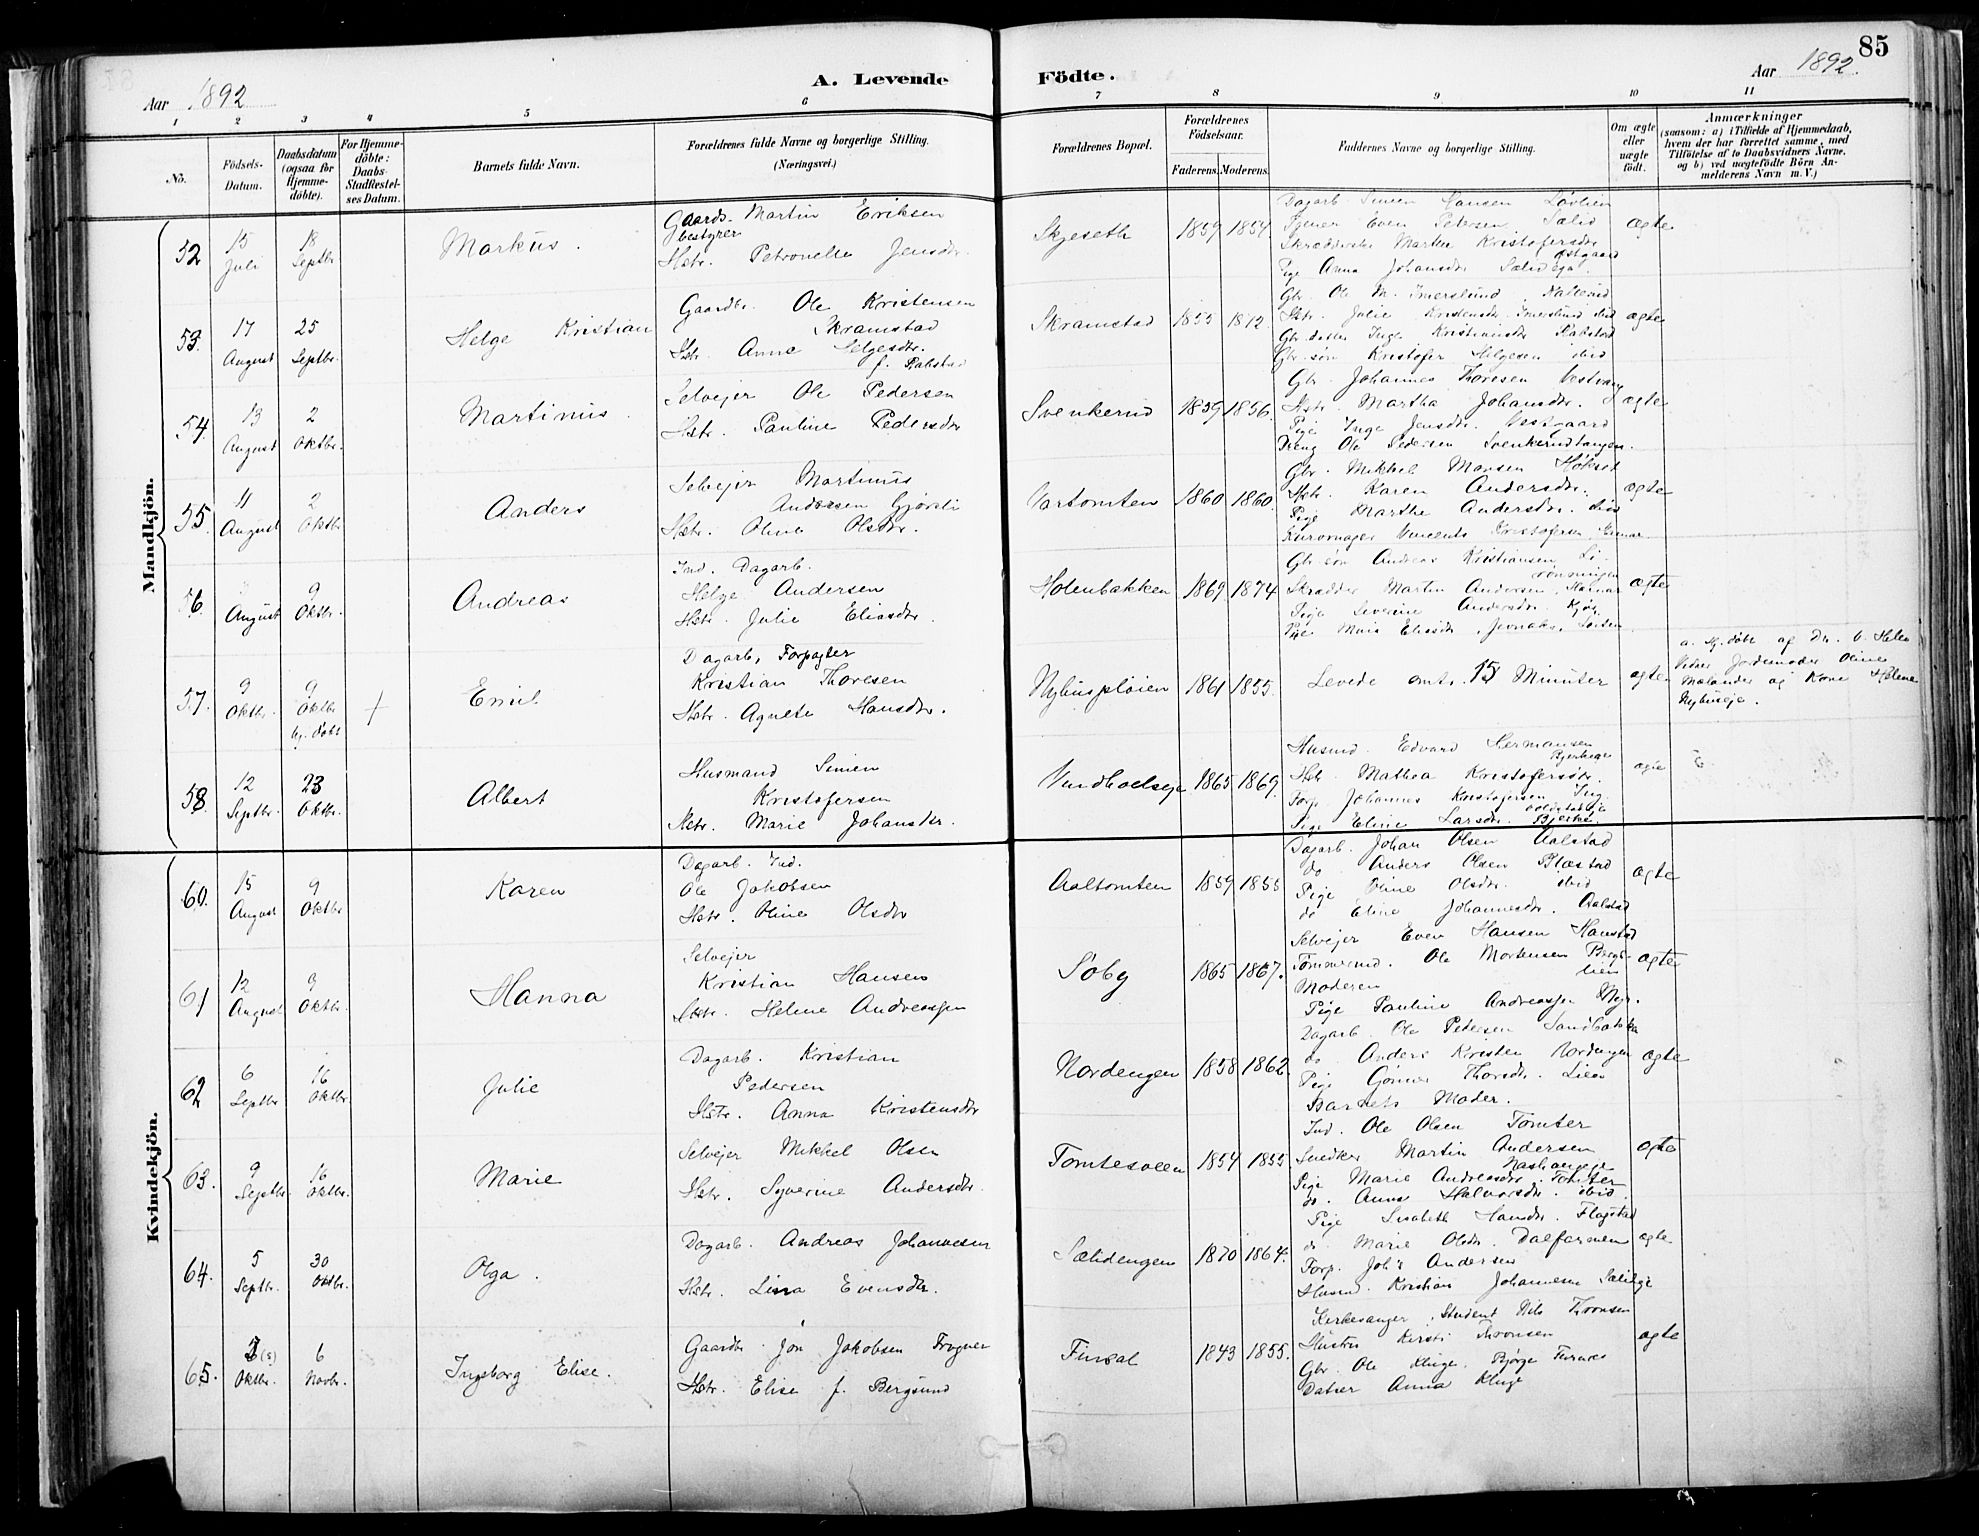 85
Aar 1892
A. Levende Födte.
Aar 1892.
1 2 3 4 5 6 7 8 9 10 11
No.
Födsels-Datum.
Daabsdatum (ogsaa for Hjemme-döbte).
For Hjemme-döbte: Daabs-Stadfæstelses Datum.
Barnets fulde Navn.
Forældrenes fulde Navne og borgerlige Stilling. (Næringsvei.)
Forældrenes Bopæl.
Forældrenes Födselsaar.
Faderens. Moderens.
Faddernes Navne og borgerlige Stilling.
Om ægte eller uægte födt.
Anmærkninger
(saasom: a) i Tilfælde af Hjemmedaab, hvem der har forrettet samme, med Tilföielse af to Daabsvidners Navne, og b) ved uægtefödte Börn Anmelderens Navn m. V.)
Mandkjön.
52 15 Juli 18 Septbr. Markus.
Gaards- Martin Eriksen
bestyrer
Hstr. Petronelle Jensdtr.
Skjeseth 1859 1854.
Dagarb. Simen Hansen Lövlien
Even Petersen Sælid
Martha Kristofersdtr.
Pige Anna Johansdtr.
ægte
53. 17 August 25 Septbr. Helge Kristian
Gaardbr. Ole Kristensen
Skramstad
Hstr. Anne Helgesdtr.
f. Rabstad
Skramstad 1855
Gbr. Ole M. Imerslund
Hstr. Julie Kristensdtr. Imerslund ibid
Gbr. datter Inge Kristiansdtr Rabstad
Gbr. sön Kristofer Helgesen ibid
ægte
54. 13 August 2 Oktbr. Martinus
Selvejer Ole Pedersen
Hstr. Pauline Pedersdtr
Svenkerud 1859 1856.
Gbr. Johannes Thoresen
Hstr. Martha Johansdtr.
Pige Inge Jensdtr. Vestgaard
Dreng Ole Pedersen Svenkerudtangen.
ægte
55. 11 August 2 Oktbr Anders
Selvejer Martinus
Andersen
Hstr. Oline Olsdtr.
Vartomten 1860 1860.
Gbr. Mikkel Hansen
Hstr. Karen Andersdtr.
Pige Marthe Andersdtr. ibid
Kurvmager Kristofersen
ægte
56. August 9 Oktbr. Andreas
Ind. Dagarb.
Helge Andersen
Hstr. Julie Eliasdtr.
Holenbakken 1869. 1874
Gbr. sön Andreas Kristiansen
Skrædder Martin Andersen
Pige Severine Andersdtr
ægte
57. 9 Oktbr. 9 Oktbr Hj. döbt + Emil
Dagarb, Forpagter
Kristian Thoresen
Hstr. Agnete Hansdtr.
Nyhuspløien 1861 1855.
Levede omtr. 15 Minuter
ægte
a. Hj. döbt af Dr.
Vidner Jordemoder Oline
Melander og Kone Helene
Nyhuseje.
58. 12 Septbr. 23 Oktbr. Albert
Husmand Simen
Kristofersen
Hstr. Marie Johansdtr.
1865 1869.
Husmd. Edvard Hermansen
Hstr. Mathea Kristofersdtr.
Forp. Johannes Kristofersen
Pige Eline Larsdtr.
ægte
Kvindekjön.
60. 15 August 9 Oktbr Karen
Dagarb. Ind.
Ole Jakobsen
Hstr. Oline Olsdtr
Aaltomten 1859 1855
Dagarb. Johan Olsen Aalstad
do Anders Olsen Blæstad
Pige Oline Olsdtr. ibid
do Eline Johannesdtr. Aalstad
ægte
61 12 August 9 Oktbr. Hanna
Selvejer
Kristian Hansen
Hstr. Helene Andreassen
Söby 1865 1867.
Selvejer Even Hansen Hanstad
Tömmermd. Ole Mortensen Bergs-
lien
Moderen
Pige Pauline Andreassen Myr.
ægte
62 6 Septbr 16 Oktbr Julie
Dagarb. Kristian
Pedersen
Hstr. Anna Kristensdtr
Nordengen 1858 1862
Dagarb. Ole Pedersen Sandbakken
do Anders Kristen Nordengen
Pige Thorsdtr. Lien
Barnets Moder.
ægte
63. 9 Septbr. 16 Oktbr. Marie
Selvejer Mikkel Olsen
Hstr. Syverine Andersdtr.
Tomtesveen 1854 1855
Ind. Ole Olsen Tomter
Snedker Martin Andersen
Pige Marie Andreasdtr. Tomter
do. Anna Halvorsdtr. ibid.
ægte
64. 5 Septbr. 30 Oktbr. Olga.
Dagarb. Andreas Johannesen
Hstr. Lina Evensdtr.
Sælidengen 1870 1864.
Pige Lisabeth Hansdtr. Flagstad
do Marie Olsdtr. Dalfarmen
Forp. Johs Andersen
Husmd. Kristian Johannesen
ægte
65. Oktbr. 6 Novbr. Ingeborg Elise.
Gaardbr. Jon Jakobsen Frogner
Hstr. Elise f. Bergsund
Finsal 1843 1855.
Kirkesanger, Student Nils Thronsen
Hustru Kersti Thronsen
Gbr. Ole Kluge. Björge Furnes
Datter Anna Kluge
ægte